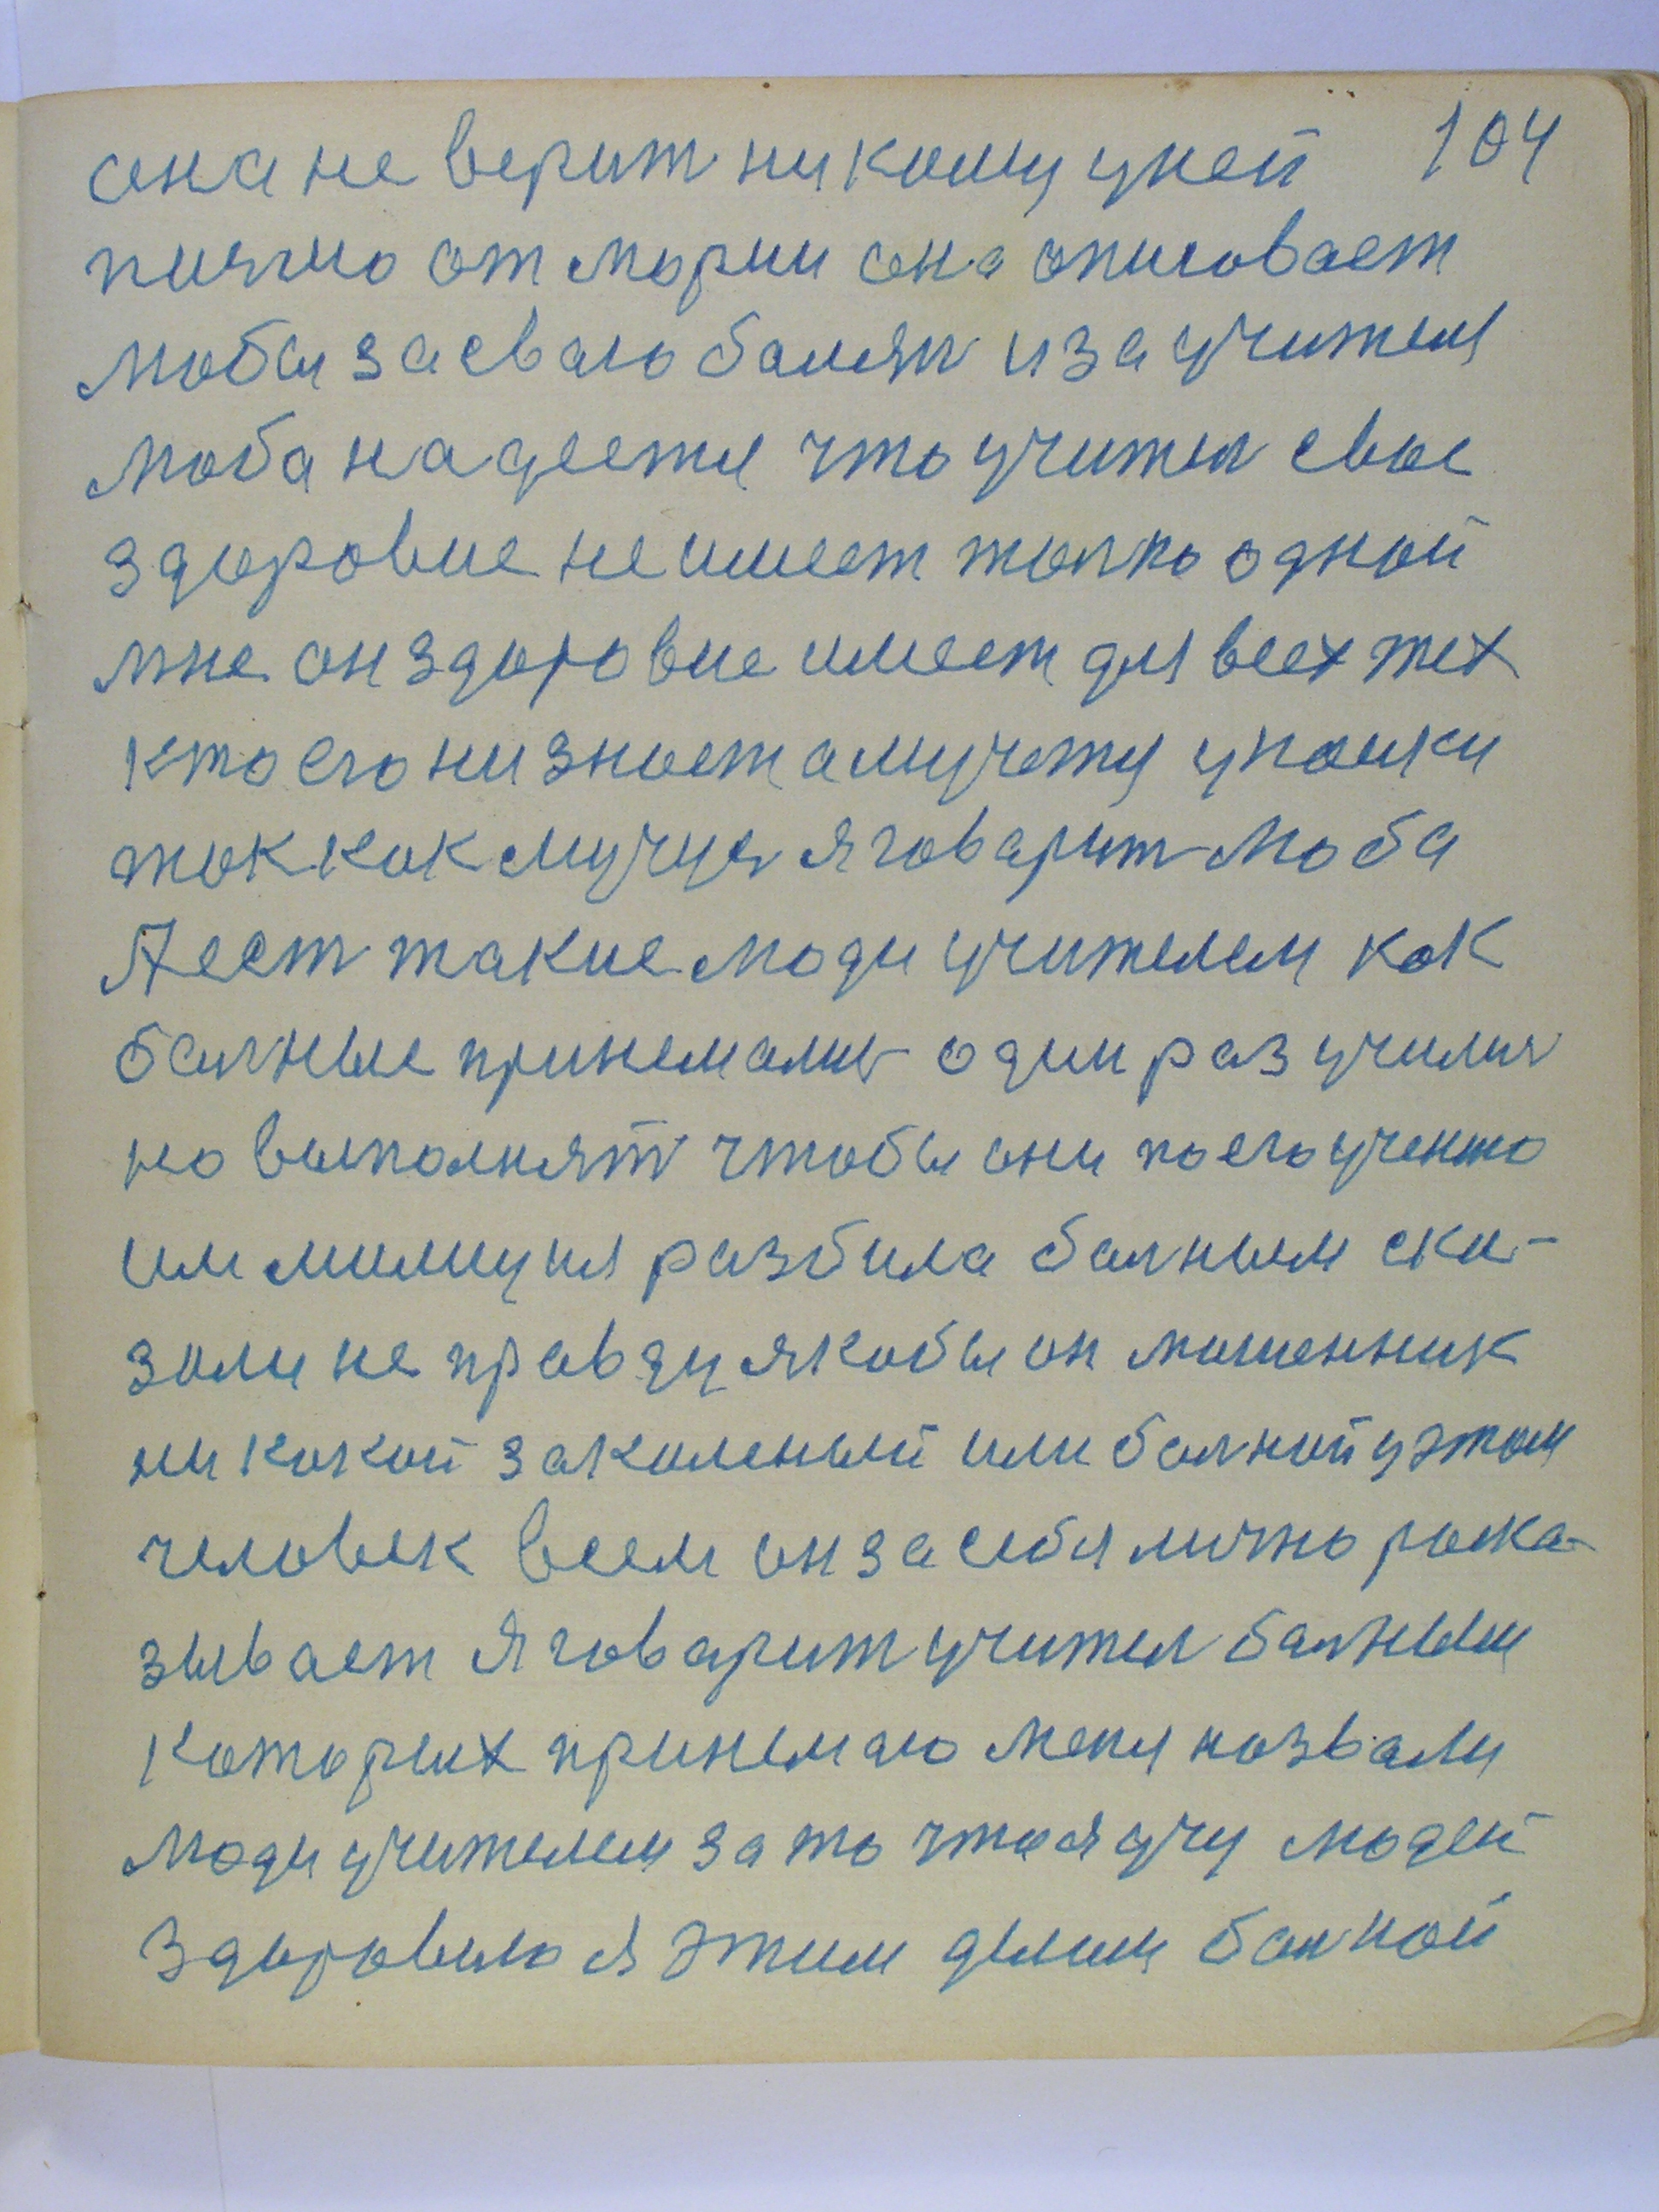 она не верит никому у ней 104
писмо от марии она описовает
Люба за сваю балезн и за учителя
Люба надеется что учител свое
здоровие не имеет толко одной
мне он здоровие имеет для всех тех
кто его ни знает а мучется упошки
так как мучуся я говарит Люба
А ест такие люди учителем как
балные принемались один раз учились
но выполнят чтобы они по его учению
им милиция разбила балным ска-
зали не правду якобы он мошенник
ни какой закаленый или балной у этом
человек всем он за себя лично раска-
зывает я говарит учител балным
которых принемаю меня назвали
люди учителем за то что я учу людей
здоровию я этим делим балной